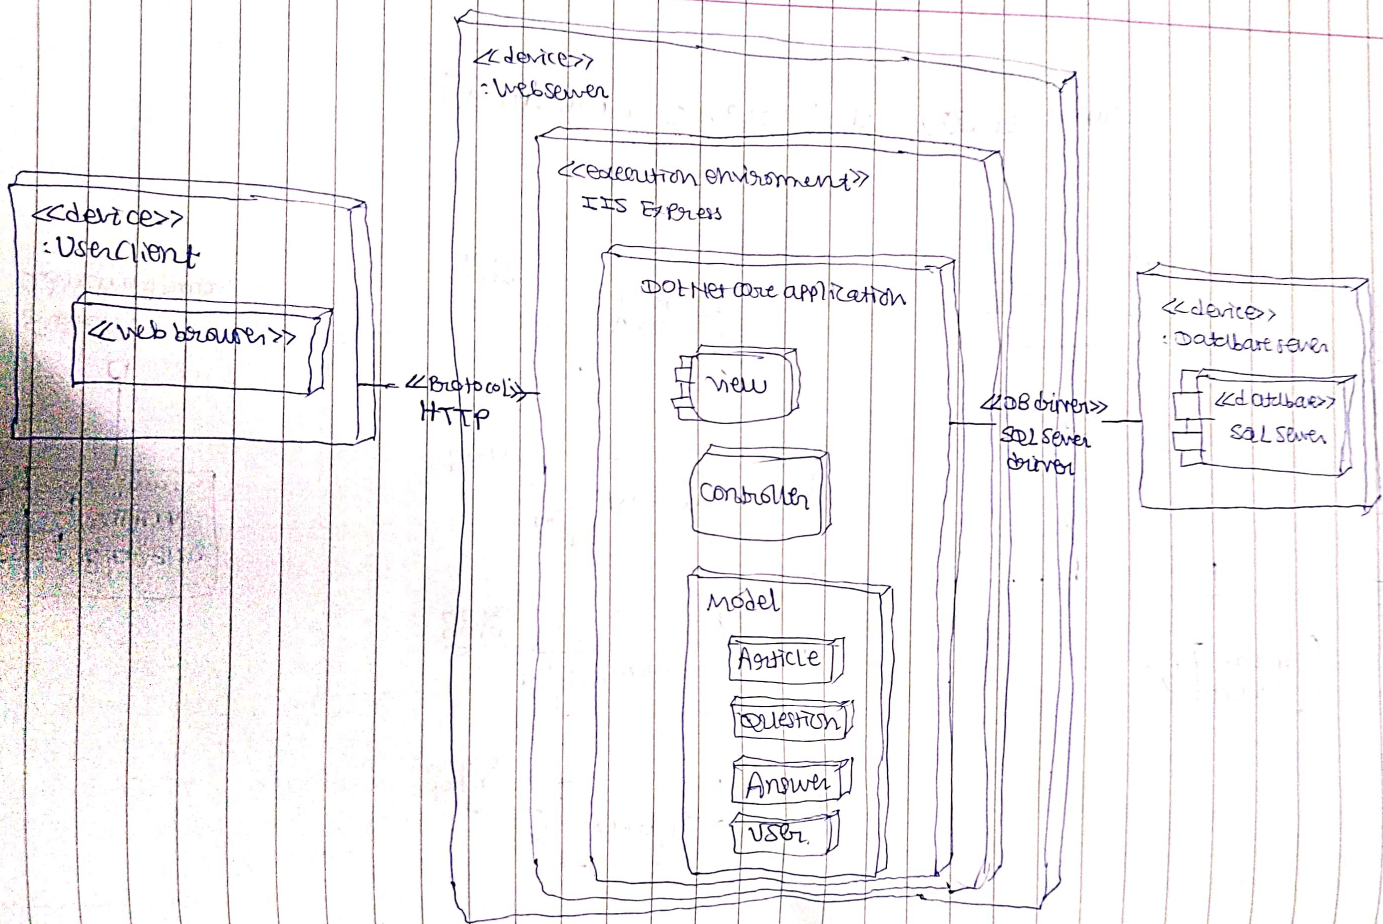 <<device>>
:UserClient
<<web browser>>
<<Protocol>>
HTTP
<<device>>
:Webserver
<<execution enviroment>>
IIS Express
DotNet core application
view
controller
Model
Article
Question
Answer
User
<<DB driver>>
SQL Server
driver
<<device>>
: Database server
<<database>>
SQL Server